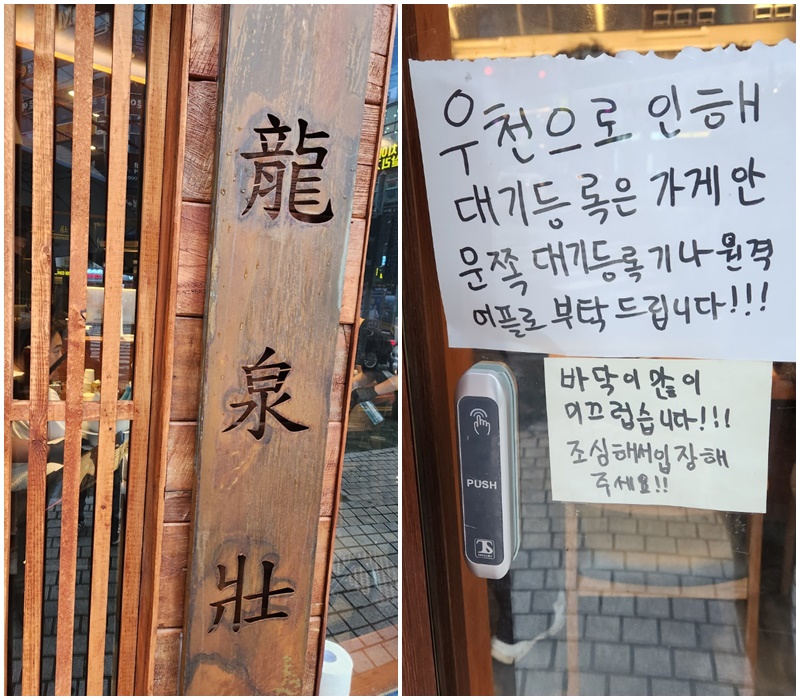 龍
泉
壯
우천으로 인해
대기등록은 가게 안
문쪽 대기등록기나 원격
어플로 부탁드립니다!!!
바닥이 많이
미끄럽습니다!!!
조심해서입장해
주세요!!
PUSH
TS